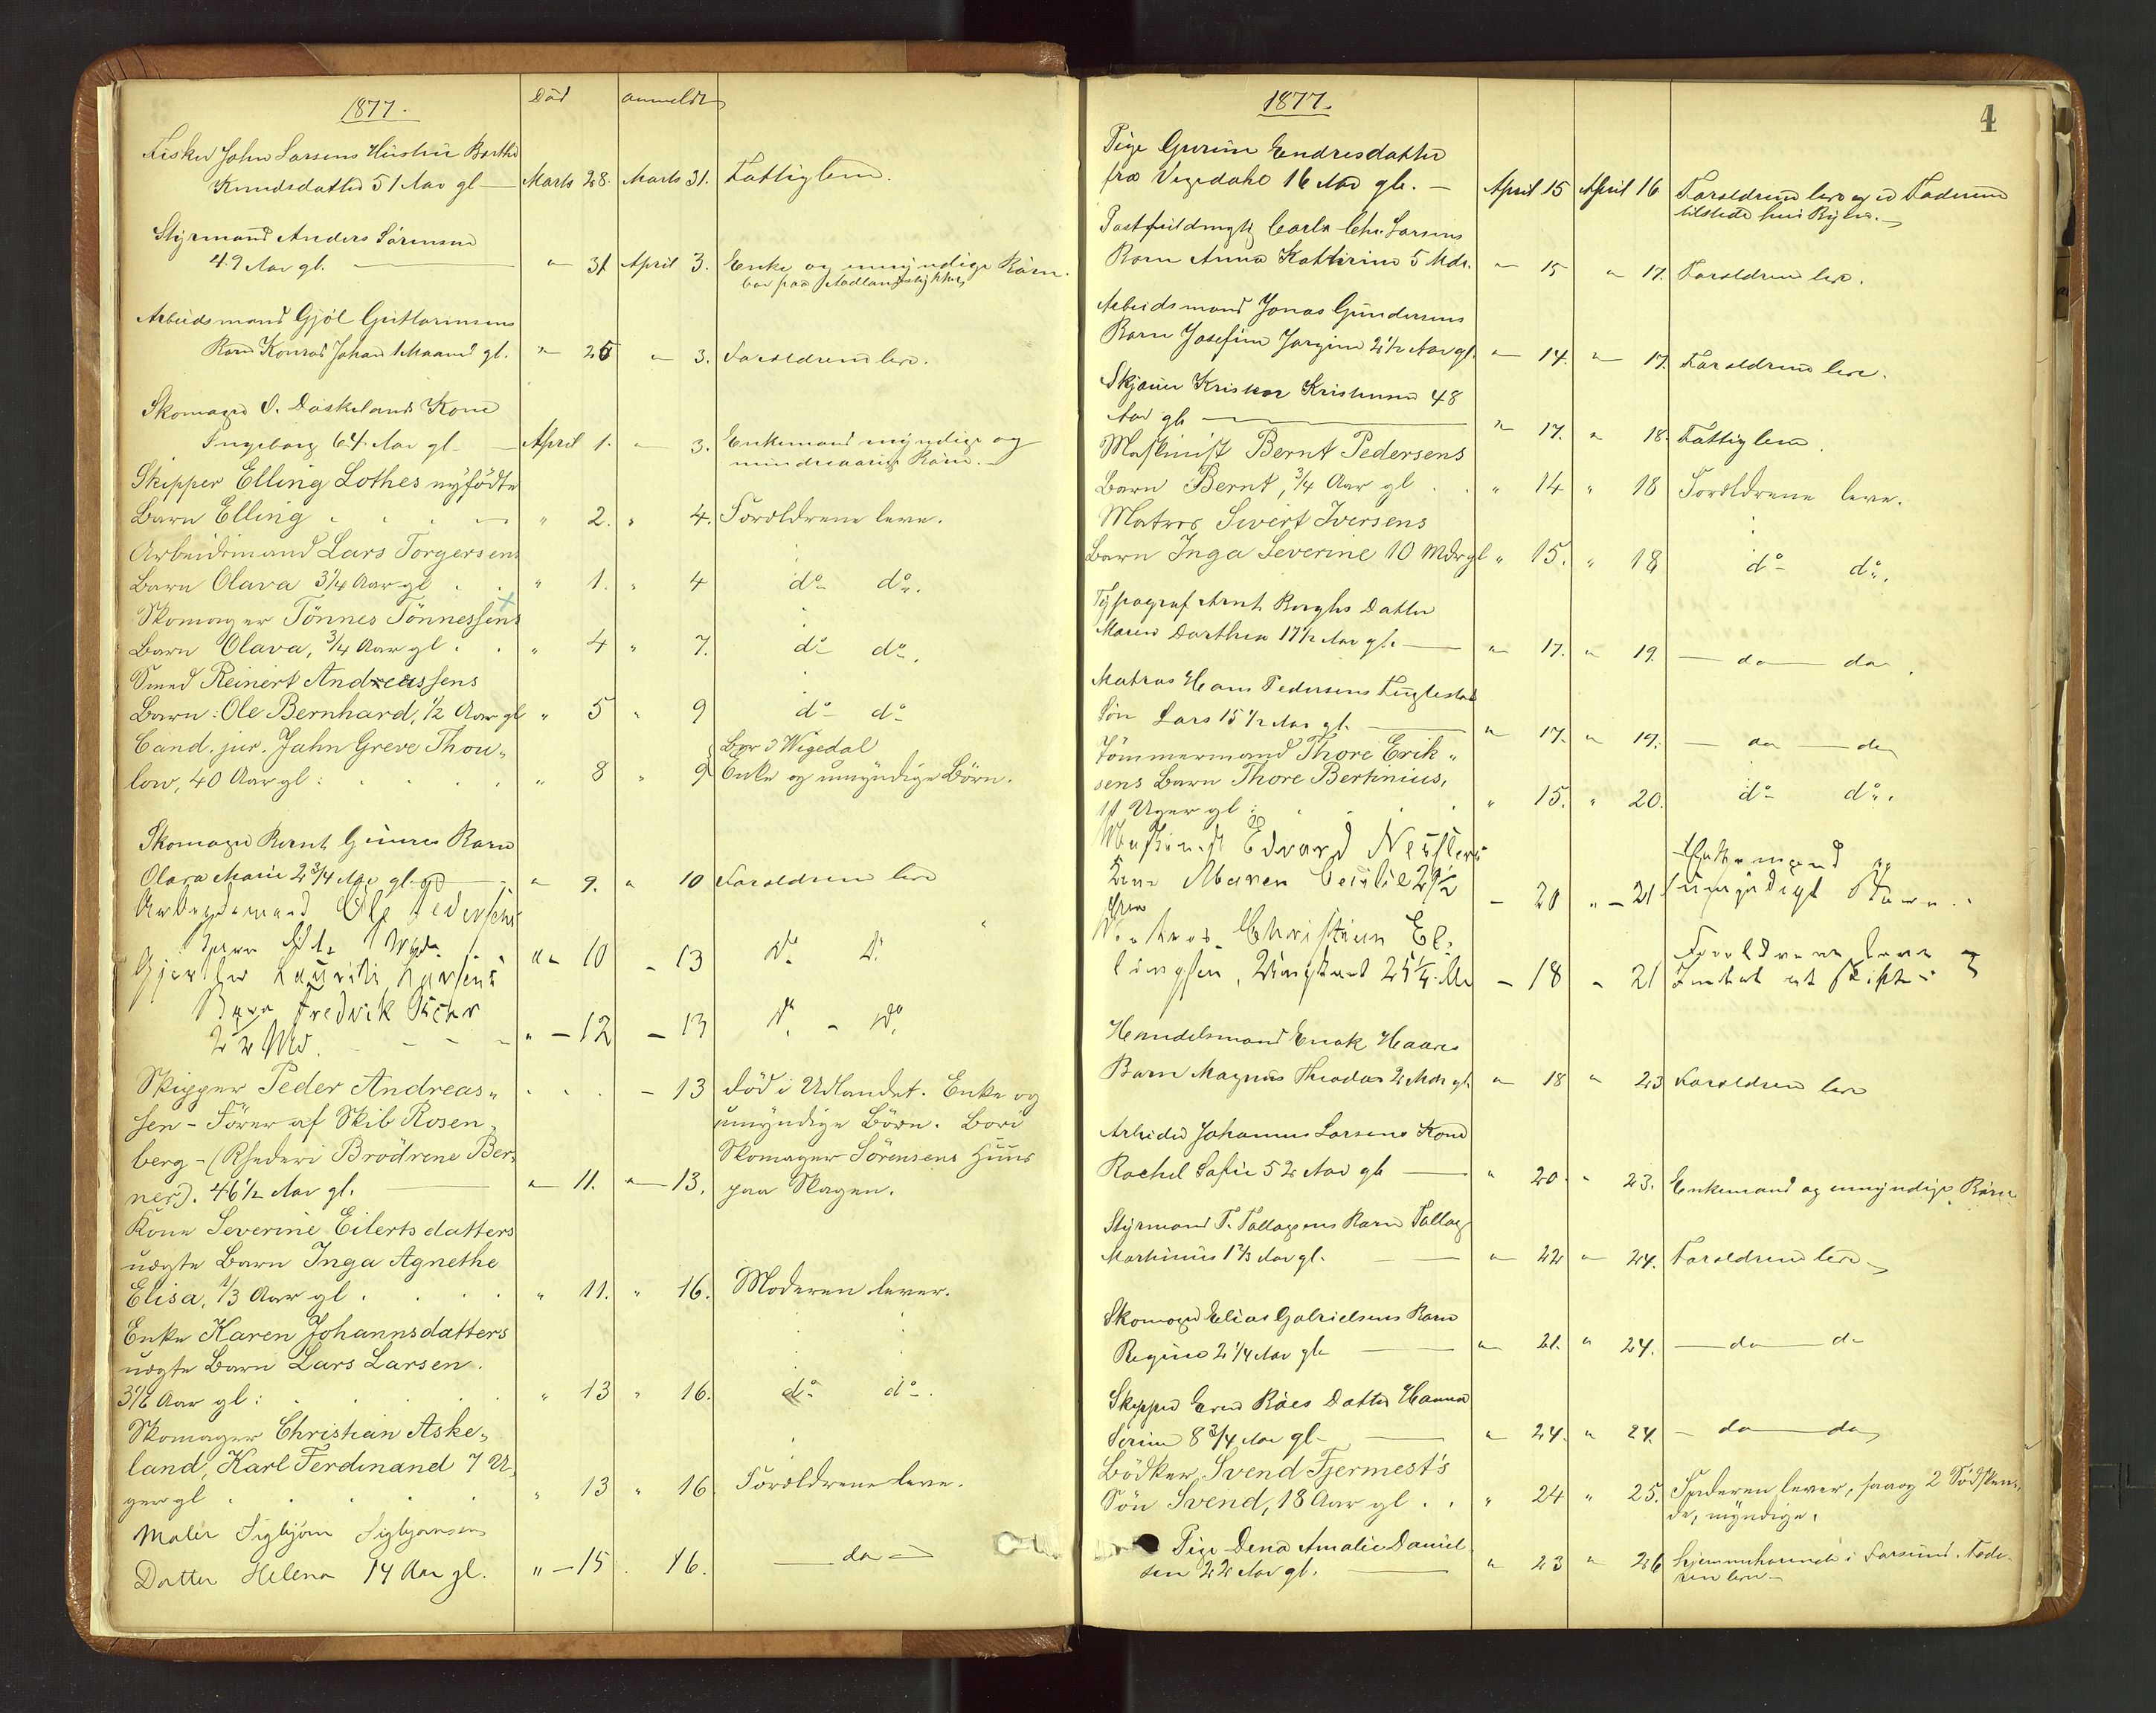 1877.
Död
anmeldt
Fisker John Larsens Hustru Berthe
Knudsdatter 51 Aar gl — Marts 28. Marts 31. Fattiglem.
Styrmand Anders Sörensen
49 Aar gl. — " 31 April 3. Enke og umyndige Börn.
bor paa
Arbeidsmand Gjöl Guttormsens
Barn Konrad Johan 1 Maaned gl. " 26 " 3. Forældrene leve.
Skomager O. Daskelands Kone
Ingeborg 64 Aar gl. — April 1. " 3. Enkemand myndige og
mindreaarige Börn.
Skipper Elling Lothes nyfödte
Barn Elling " 2. " 4. Forældrene leve.
Arbeidsmand Lars Torgersens
Barn Olava 3 1/4 Aar gl " 1. " 4 do do.
Skomager Tönnes Tönnessens
Barn Olava, 3/4 Aar gl. " 4 " 7. do do.
Smed Reinert Andreassens
Barn: Ole Bernhard, 1/2 Aar gl " 5 " 9 do do
Cand. jur. Jahn Greve Thou-
low, 40 Aar gl: " 8 " 9
Bor i Wigedal
Enke og umyndige Börn.
Skomager Bernt Barn
Olava Marie 2 3/4 Aar gl. " 9. " 10 Forældrene leve
Arbeidsmand Ole Pedersens
" 10 - 13 do do
Gjørtler Lauritz Larsens
Barn Fredrik
2 1/2 Md. " - 12 - 13 do - do
Skipper Peder Andreas-
sen - Förer af Skib Rosen-
berg - (Rhederi Brödrene Ber-
ner). 46 1/2 Aar gl. " 11. " 13.
- 13 död i Udlandet. Enke og
umyndige Börn. Bor i
Skomager Sörensens Huus
paa Skagen.
Kone Severine Eilertsdatters
uægte Barn Inga Agnethe
Elisa, 1/3 Aar gl. " 11. " 16. Moderen lever.
Enke Karen Johannsdatters
uægte Barn Lars Larsen.
3 1/6 Aar gl: " 13 " 16. do do.
Skomager Christian Aske-
land, Karl Ferdinand 7 U-
ger gl " 13 " 16. Forældrene leve.
Maler Sigbjörn Sigbjörnsens
Datter Helena 14 Aar gl. " - 15 . 16. — do —
1877.
4
Pige Gurine Endresdatter
fra Vigedahl 16 Aar gl. — April 15 April 16 Forældrene leve og er Faderen
tilstede her i Byen.
Postfuldmægtig Carls Chr. Larsens
Barn Anna Kathrine 5 Mdr. " 15 " 17. Forældrene leve.
Arbeidsmand Jonas Gundersens
Barn Josefine Jorgine 2 1/2 Aar gl. " 14. " 17. Forældrene leve.
Kristensen 48
Aar gl — " 17. " 18. Fattiglem
Maskinist Bernt Pedersens
Barn Bernt, 3/4 Aar gl. " 14 " 18 Forældrene leve.
Matros Sivert Iversens
Barn Inga Severine 10 Mdr gl " 15. " 18 do do.
Typograf Arnt Berghs Datter
Maren Dorthea 17 1/2 Aar gl. — " 17. " 19. — do — do
Matros Hans Pedersens Fuglestad
Sön Lars 15 1/2 Aar gl. — " 17. " 19. — do — do
Tömmermand Thore Erik-
sens Barn Thore Bertinius,
11 Uger gl: " 15. " 20. do do.
Maskinist Edvard
Kone Maren Cecilie 29 1/2
- 20 " - 21 Enkemand og
umyndigt Barn.
Matros Christian El-
lingsen, Ungkarl 25 1/4 Aar - 18 - 21
Forældrene leve og
Intet at skifte
Handelsmand Enok Haaves
Barn Magnus Theodor 2 Mdr gl. " 18 " 23 Forældrene leve
Arbeider Johannes Larsens Kone
Rachel Sofie 52 Aar gl — " 20. " 23. Enkemand og umyndige Börn
Styrmand T. Tallagsens Barn Tallag
Martinius 1 2/3 Aar gl. — " 22 " 24. Forældrene leve
Skomager Elias Gabrielsens Barn
Regine 2 1/4 Aar gl. — " 21. " 24. — do — do
Skipper Röes Datter Hanna
Serine 8 3/4 Aar gl. — " 24. " 24. — do — do
Bödker Svend Tjermest's
Sön Svend, 18 Aar gl. " 24 " 25. Faderen lever, saaog 2 Södsken-
de, myndige.
Pige Dena Amalie Daniel-
sen 22 Aar gl. — " 23 " 26 hjemmehörende i Farsund. Fade-
ren lever